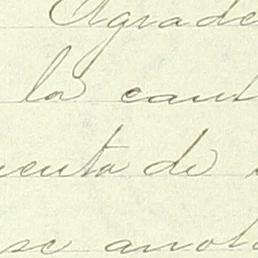 Agrade
la cant
uenta de
se anota